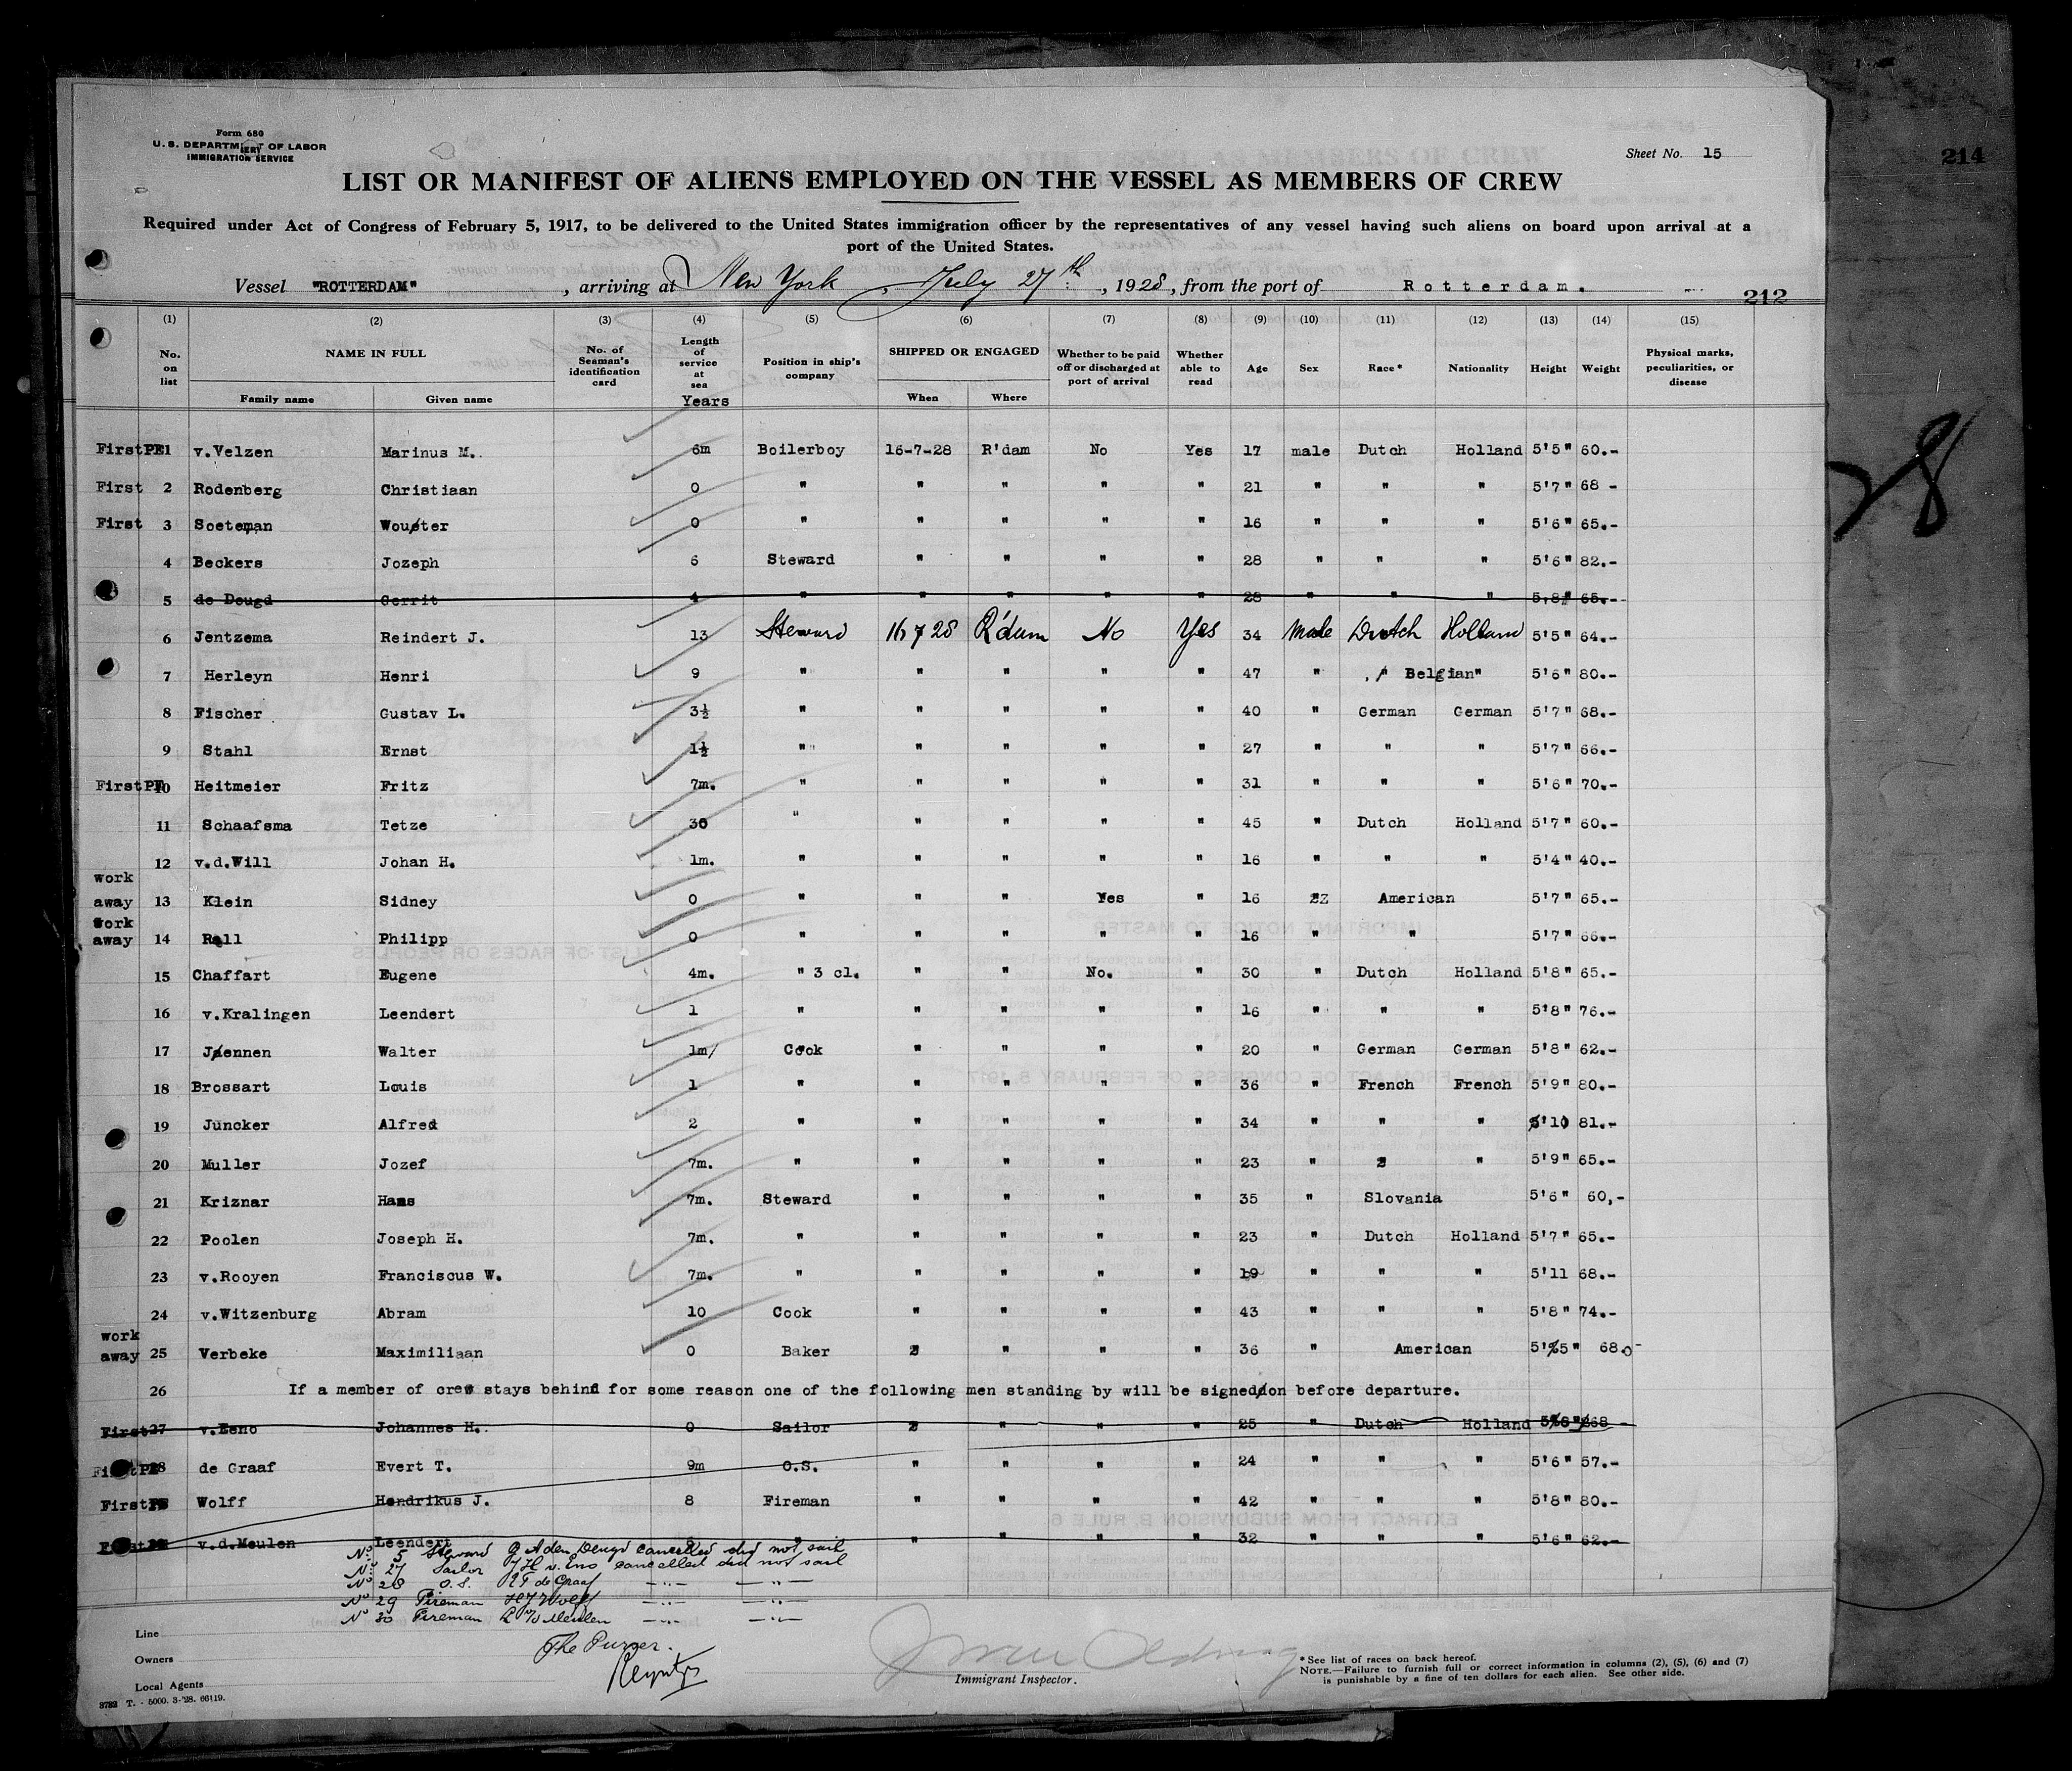 Form 680
U. S. DEPARTMENT OF LABOR
IMMIGRATION SERVICE
Sheet No. 15
214
LIST OR MANIFEST OF ALIENS EMPLOYED ON THE VESSEL AS MEMBERS OF CREW
Required under Act of Congress of February 5, 1917, to be delivered to the United States immigration officer by the representatives of any vessel having such aliens on board upon arrival at a
port of the United States.
Vessel "ROTTERDAM", arriving at New York, July 27th, 1928, from the port of Rotterdam.
212
(1) (2) (3) (4) (5) (6) (7) (8) (9) (10) (11) (12) (13) (14) (15)
No. on list NAME IN FULL Family name Given name No. of Seaman's identification card Length of service at sea Years Position in ship's company SHIPPED OR ENGAGED When Where Whether to be paid off or discharged at port of arrival Whether able to read Age Sex Race* Nationality Height Weight Physical marks, peculiarities, or disease
First PE 1 v.Velzen Marinus M. 6m Boilerboy 16-7-28 R'dam No Yes 17 male Dutch Holland 5'5" 60.-
First 2 Rodenberg Christiaan 0 " " " " " 21 " " " 5'7" 68 -
First 3 Soeteman Wouter 0 " " " " " 16 " " " 5'6" 65.-
4 Beckers Jozeph 6 Steward " " " " 28 " " " 5'6" 82.-
5 de Dougd Gerrit 4 " " " " " 28 " " " 5,8" 65.-
6 Jentzema Reindert J. 13 Steward 16 7 28 R'dam No Yes 34 Male Dutch Holland 5'5" 64.-
7 Herleyn Henri 9 " " " " " 47 " " Belgian" 5'6" 80.-
8 Fischer Gustav L. 3½ " " " " " 40 " German German 5'7" 68.-
9 Stahl Ernst 1½ " " " " " 27 " " " 5'7" 66.-
First PE 10 Heitmeier Fritz 7m. " " " " " 31 " " " 5'6" 70.-
11 Schaafsma Tetze 30 " " " " " 45 " Dutch Holland 5'7" 60.-
12 v.d.Will Johan H. 1m. " " " " " 16 " " " 5'4" 40.-
work away 13 Klein Sidney 0 " " " Yes " 16 " American 5'7" 65.-
work away 14 Rall Philipp 0 " " " " " 16 " " 5'7" 66.-
15 Chaffart Eugene 4m. " 3 cl. " " No. " 30 " Dutch Holland 5'8" 65.-
16 v.Kralingen Leendert 1 " " " " " 16 " " " 5'8" 76.-
17 Jaennen Walter 1m/ Cook " " " " 20 " German German 5'8" 62.-
18 Brossart Louis 1 " " " " " 36 " French French 5'9" 80.-
19 Juncker Alfred 2 " " " " " 34 " " " 5'10 81.-
20 Muller Jozef 7m. " " " " " 23 " " " 5'9" 65.-
21 Kriznar Hans 7m. Steward " " " " 35 " Slovania 5'6" 60,-
22 Poolen Joseph H. 7m. " " " " " 23 " Dutch Holland 5'7" 65.-
23 v.Rooyen Franciscus W. 7m. " " " " " 19 " " " 5'11 68.-
24 v.Witzenburg Abram 10 Cook " " " " 43 " " " 5'8" 74.-
work away 25 Verbeke Maximiliaan 0 Baker " " " " 36 " American 5'5" 68.-
26 If a member of crew stays behind for some reason one of the following men standing by will be signed/on before departure.
First 27 v.Eeno Johannes H. 0 Sailor " " " " 25 " Dutch Holland 5'8" 68 -
First PE 28 de Graaf Evert T. 9m O.S. " " " " 24 " " " 5'6" 57.-
First Wolff Hendrikus J. 8 Fireman " " " " 42 " " " 5'8" 80.-
First v.d.Meulen Leendert " " " " " 32 " " " 5'6" 62.-
No. 5 Steward G A den Dengd cancelled did not sail
No. 27 Sailor J H v. Eno cancelled did not sail
No 28 O.S. E T de Graaf -"- -"-
No 29 Fireman H J Wolff -"- -"-
No 30 Fireman L v/d Meulen -"- -"-
Line
Owners
Local Agents
The Purser.
Immigrant Inspector.
* See list of races on back hereof.
NOTE.—Failure to furnish full or correct information in columns (2), (5), (6) and (7)
is punishable by a fine of ten dollars for each alien. See other side.
3782 T. - 5000. 3-'28. 66119.